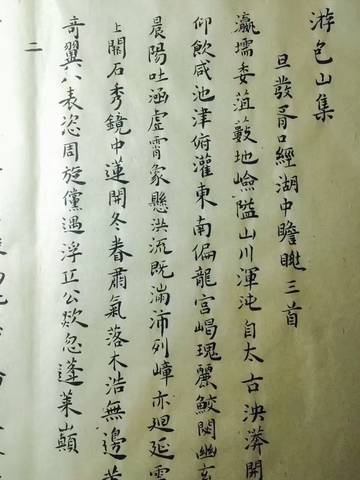 游包山集
旦發胥口經湖中瞻眺三首
瀛壖委菹藪地嶮隘山川渾沌自太古泱漭開
仰飲咸池津俯灌東南偏龍宮崛瑰麗鮫閟幽玄
晨陽吐涵虛霄象懸洪流既滿沛列嶂亦廻延雲
上關石秀鏡中蓮開冬眷肅氣落木浩無邊
奇翼八表恣周旋儻遇浮丘公欻忽蓬萊巔
二